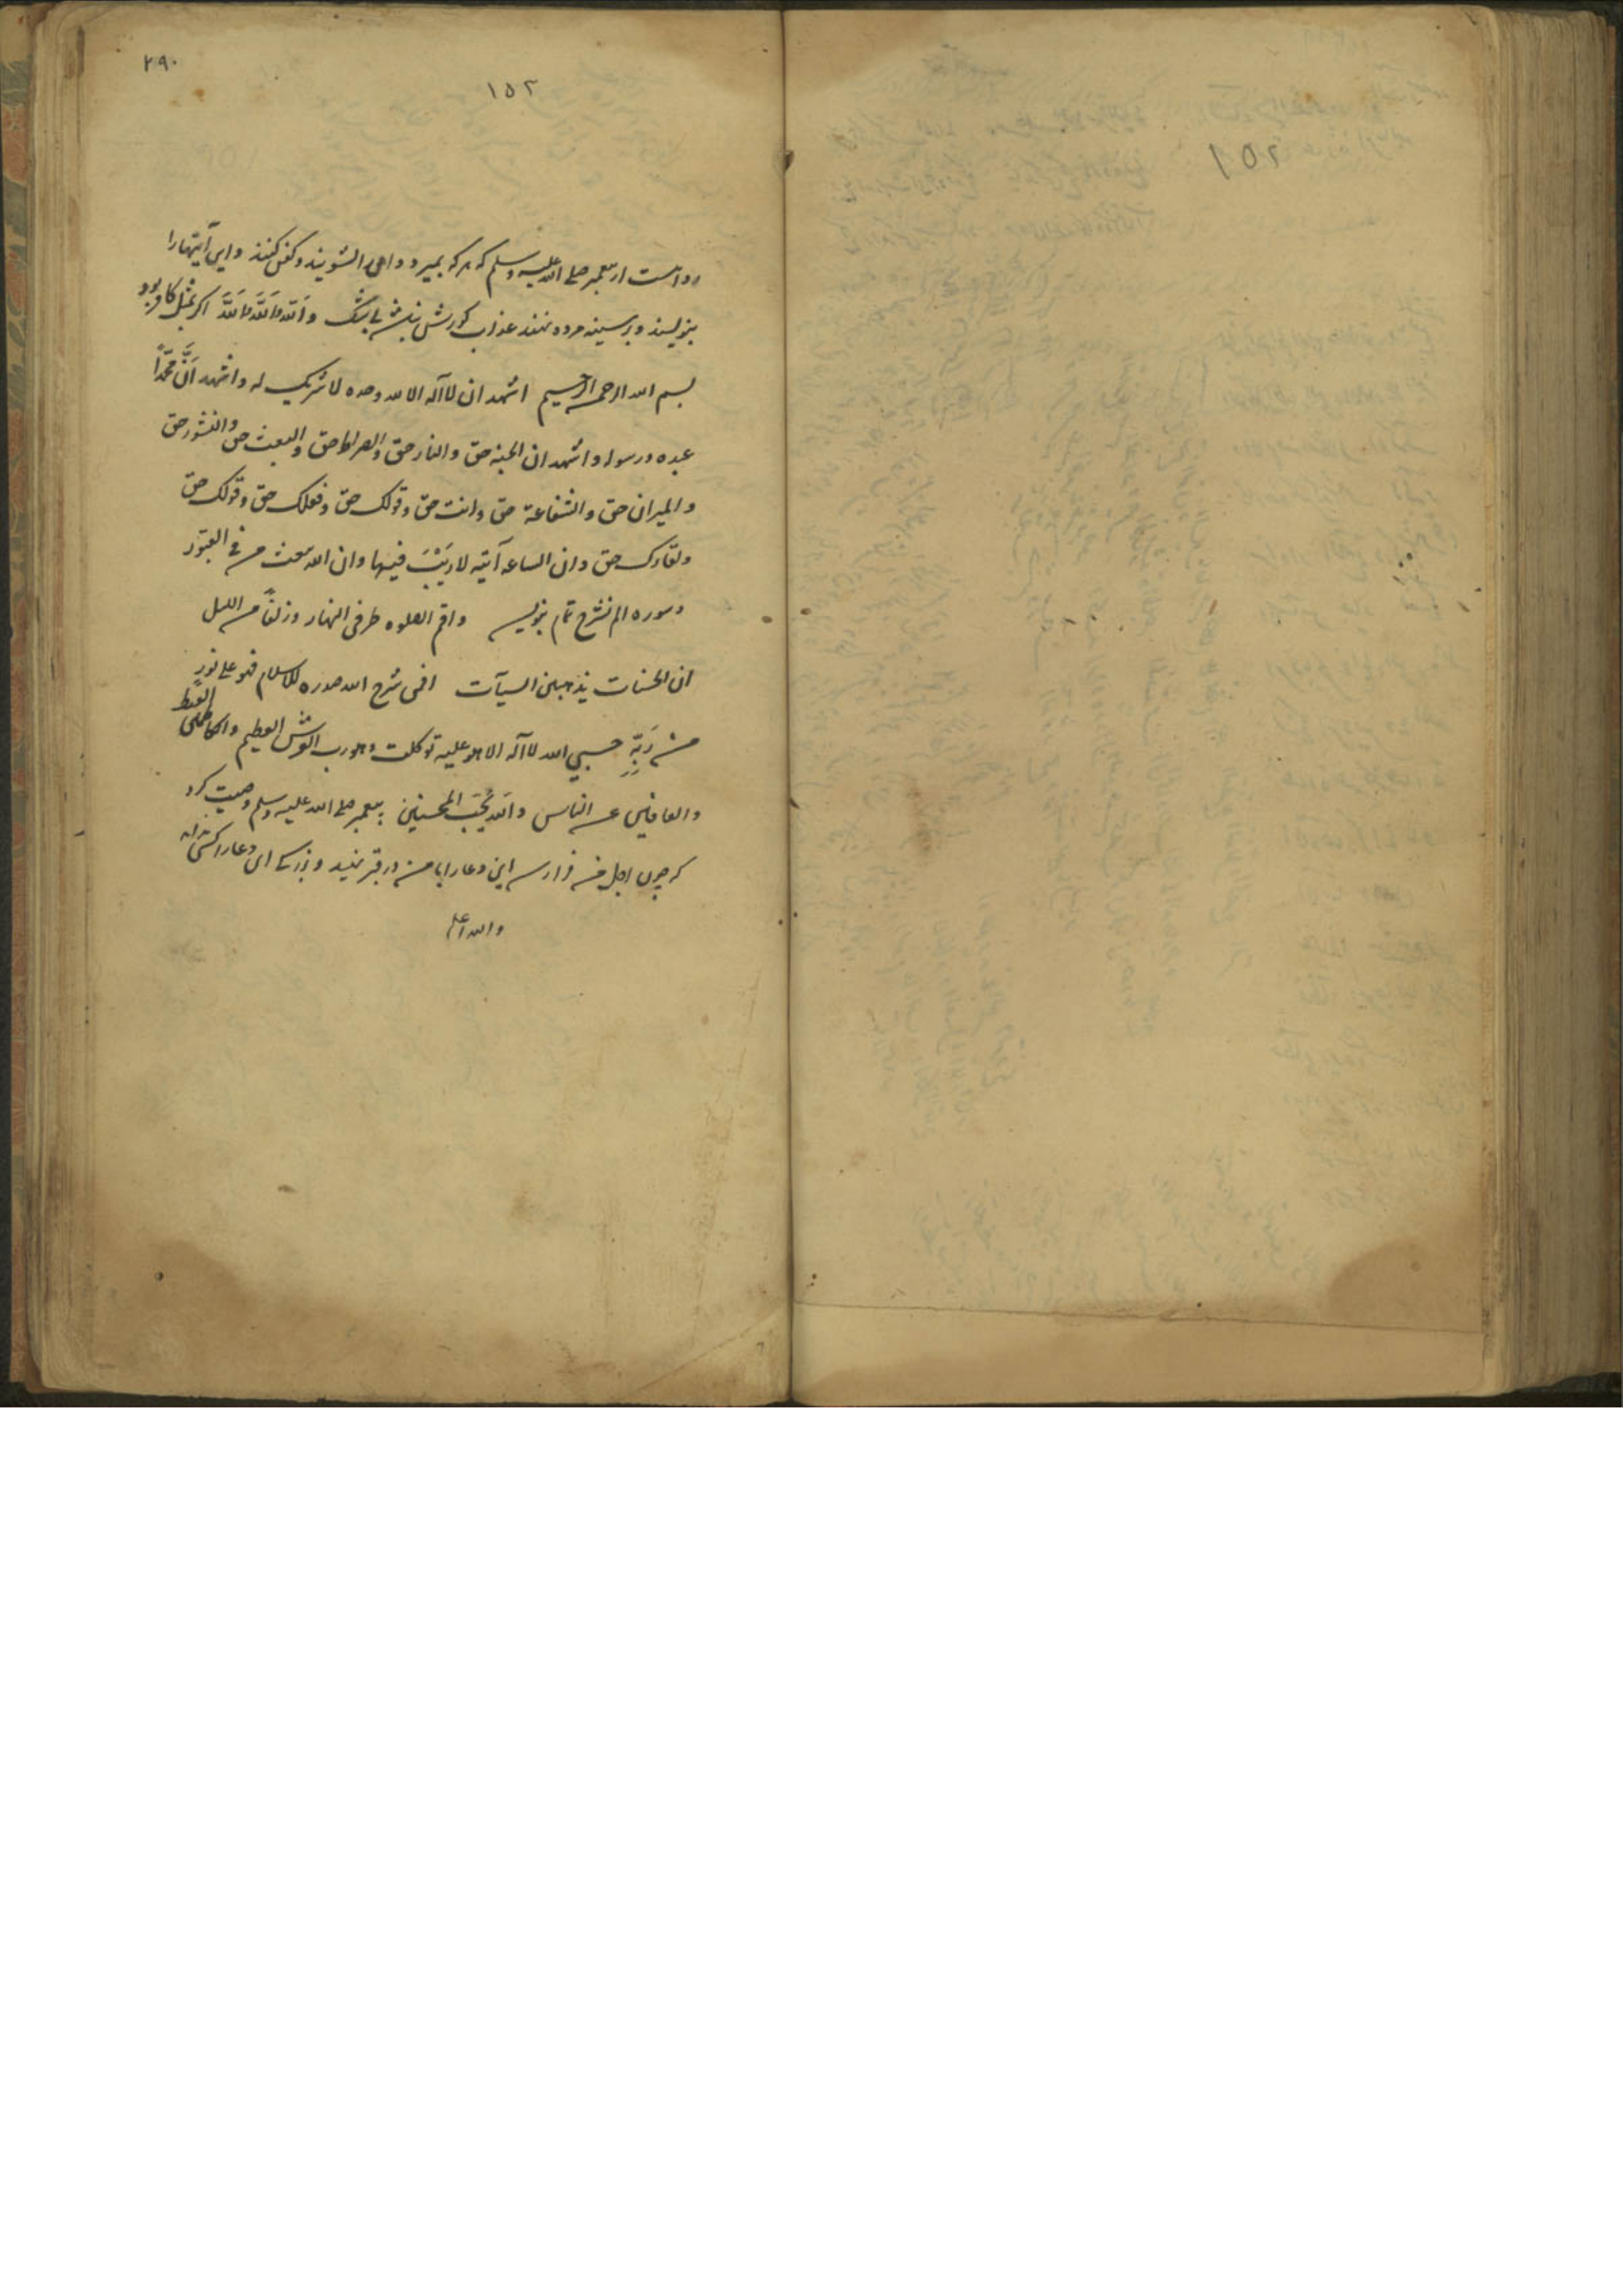 ۲۹۰
۱۵۲
۱۵۲
روایست از پیغمبر صلی الله علیه وسلم که هرکه بمیرد و او را بشویند و کفن کنند و این آیتها را
بنویسند و بر سینه مرده نهند عذاب کورش نباشد بی شک والله بالله تالله اکر بمثل کافر بود
بسم الله الرحمن الرحیم اشهد ان لا آله الا الله وحده لا شریک له و اشهد اَنَّ محمّداً
عبده ورسوله و اشهد ان الجنه حق والنار حق والصراط حق والبعث حق والنشور حق
والمیزان حق والشفاعة حق وانت حق وقولک حق وفعلک حق وقولک حق
ولقاؤک حق وان الساعه آتیه لا رَیْبَ فیها وان الله یبعث من فی القبور
وسوره الم نشرح تمام بنویسد واقم الصلوه طرفی النهار وزلفاً من اللیل
ان الحسنات یذهبن السیآت افمن شرح الله صدره للاسلام فهو علی نورٍ
من رَبِّهِ حسبی الله لا آله الا هو علیه توکلت وهو رب العرش العظیم والکاظمین الغیظ
والعافین عن الناس والله یُحِبّ المحسنین پیغمبر صلی الله علیه وسلم وصیت کرد
که چون اجل من فرا رسد این دعا را با من در قبر نهید و بزرکی این دعا را
والله اعلم